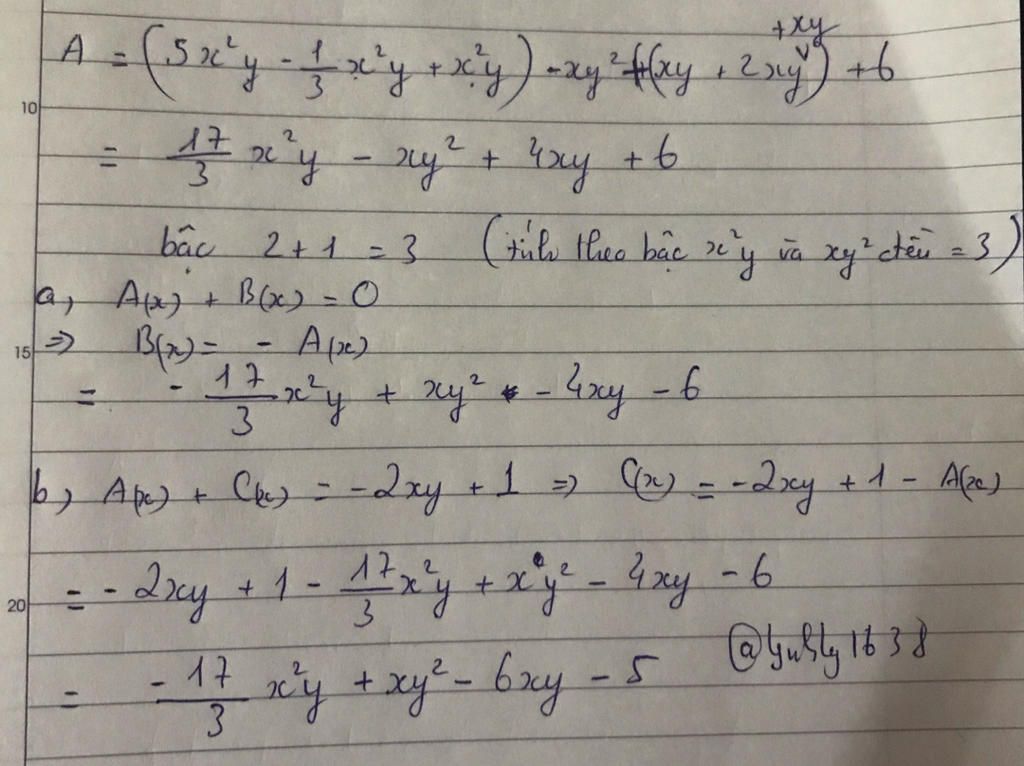 +xy
A = (5x²y - 1/3 x²y + x²y) - xy² + (xy + 2xy) + 6
10
= 17/3 x²y - xy² + 4xy + 6
bậc 2 + 1 = 3 (tính theo bậc x²y và xy² đều = 3)
a, A(x) + B(x) = 0
15 => B(x) = - A(x)
= - 17/3 x²y + xy² - 4xy - 6
b, A(x) + C(x) = -2xy + 1 => C(x) = -2xy + 1 - A(x)
20 = - 2xy + 1 - 17/3 x²y + xy² - 4xy - 6
= - 17/3 x²y + xy² - 6xy - 5